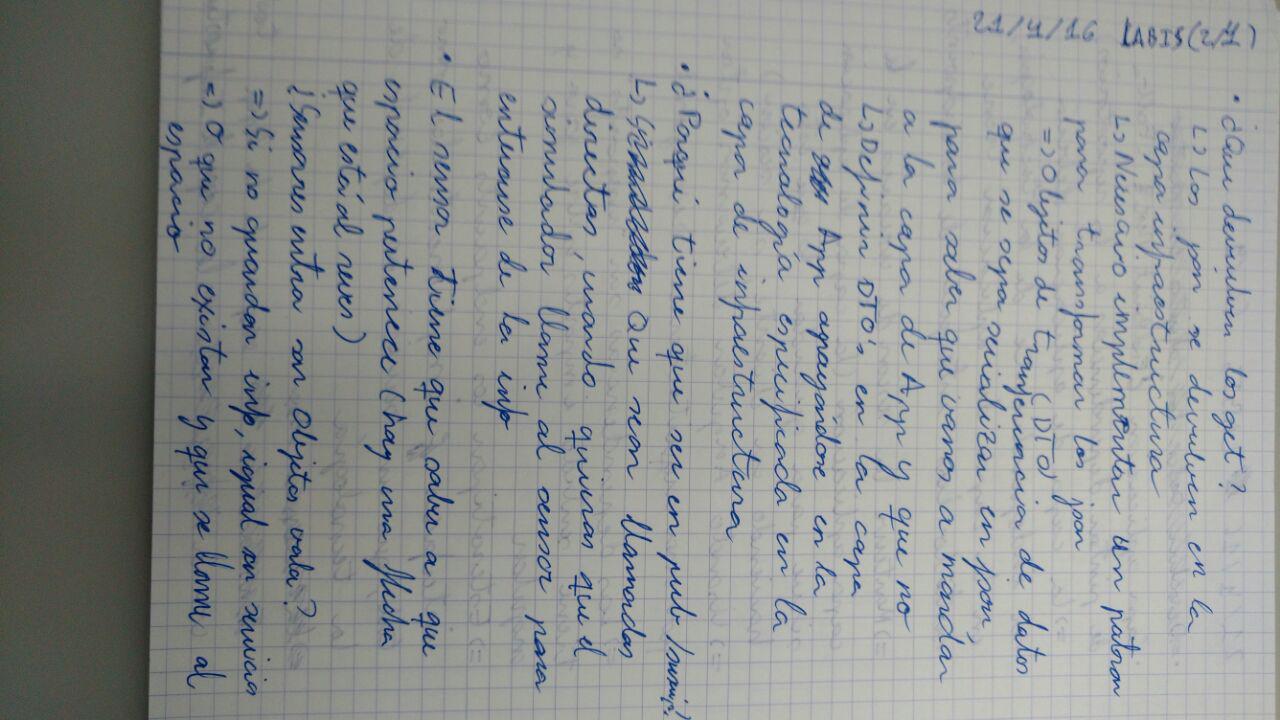 21/4/16 LABIS(2/1)
• ¿Que devuelven los get?
↳ Los json se devuelven en la
capa infraestructura
↳ Necesario implementar un patron
para transformar los json
=> Objetos de transferencia de datos (DTO)
que se sepa serializar en json,
para saber que vamos a mandar
a la capa de App y que no
↳ Definir DTO's en la capa
de App apoyándose en la
tecnología especificada en la
capa de infraestructura
• ¿Porqué tiene que ser en pub/
↳ Que sean llamadas
directas, cuando quieras que el
simulador llame al sensor para
enterarse de la info
• El sensor tiene que saber a que
espacio pertenece (hay una flecha
que está al reves)
¿Sensores entra son Objetos vala?
=> Si no guardan info, igual son servicios
=> O que no existan y que se llame al
espacio